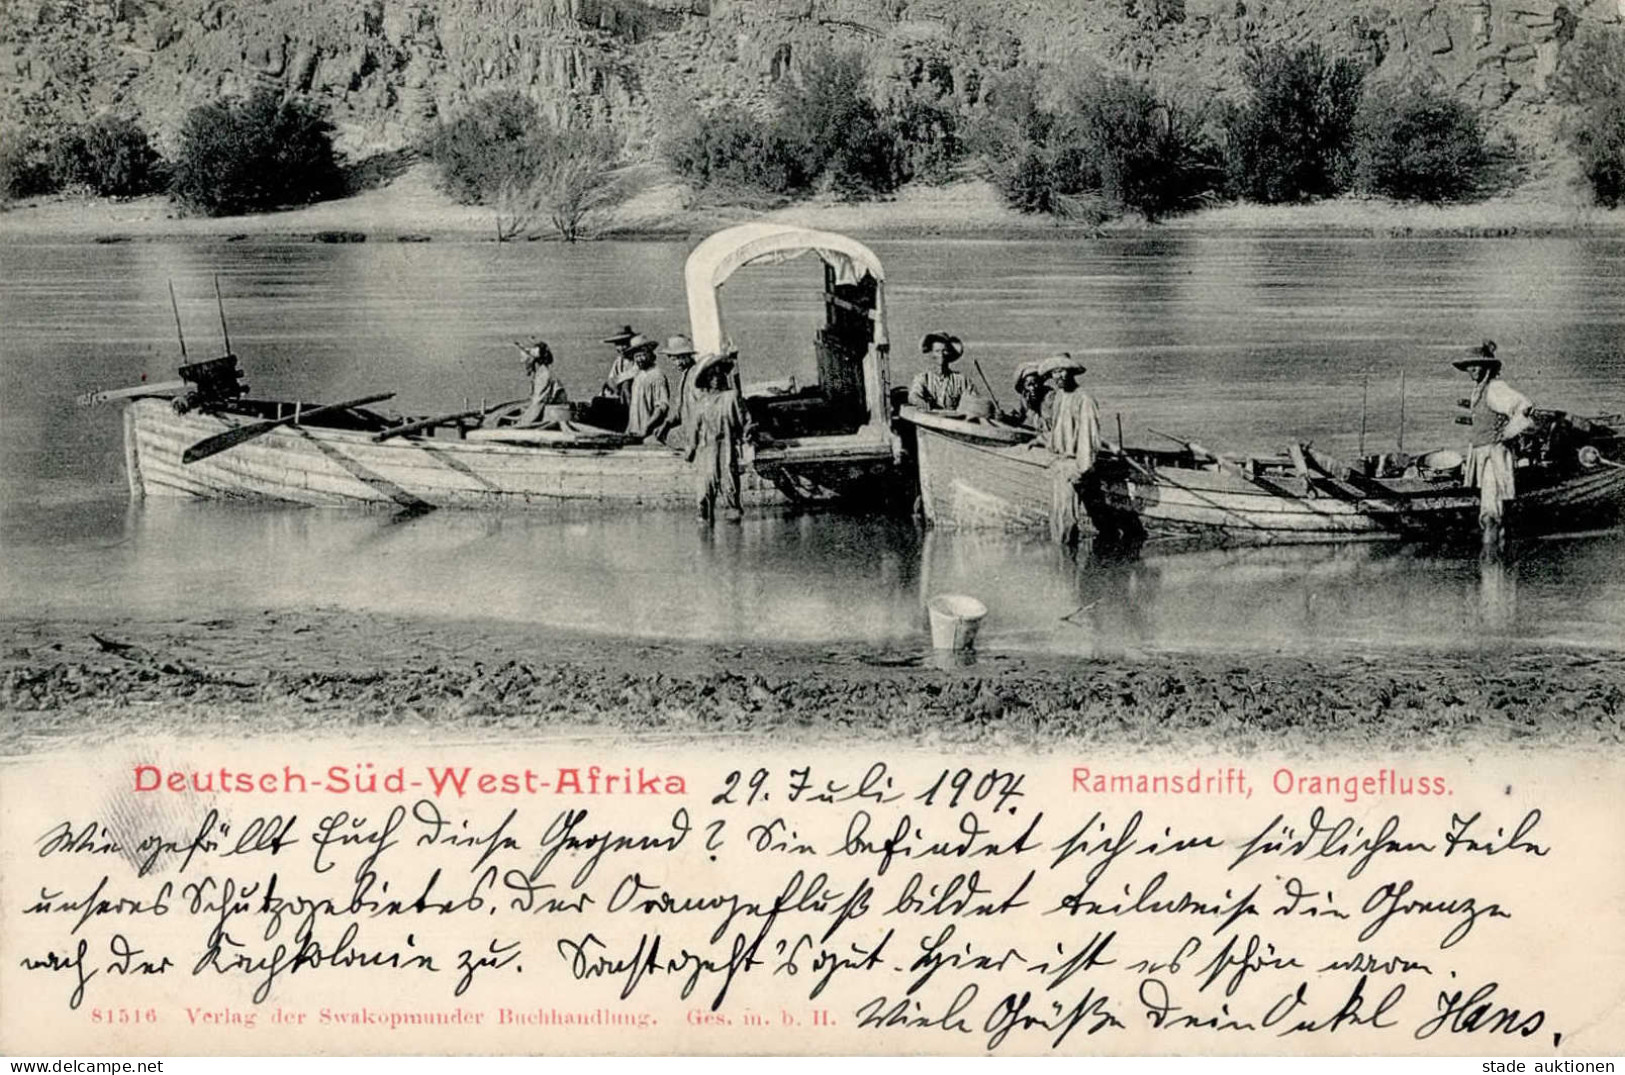 Deutsch-Süd-West-Afrika 29. Juli 1904. Ramansdrift, Orangefluss.
Wie gefällt Euch diese Gegend? Sie befindet sich im südlichen Teile
unseres Schutzgebietes. Der Orangefluß bildet teilweise die Grenze
nach der Kapkolonie zu. Sonst geht's gut. Hier ist es schön warm.
Viele Grüße Dein Onkel Hans.
81516 Verlag der Swakopmunder Buchhandlung. Ges. m. b. H.
stade auktionen